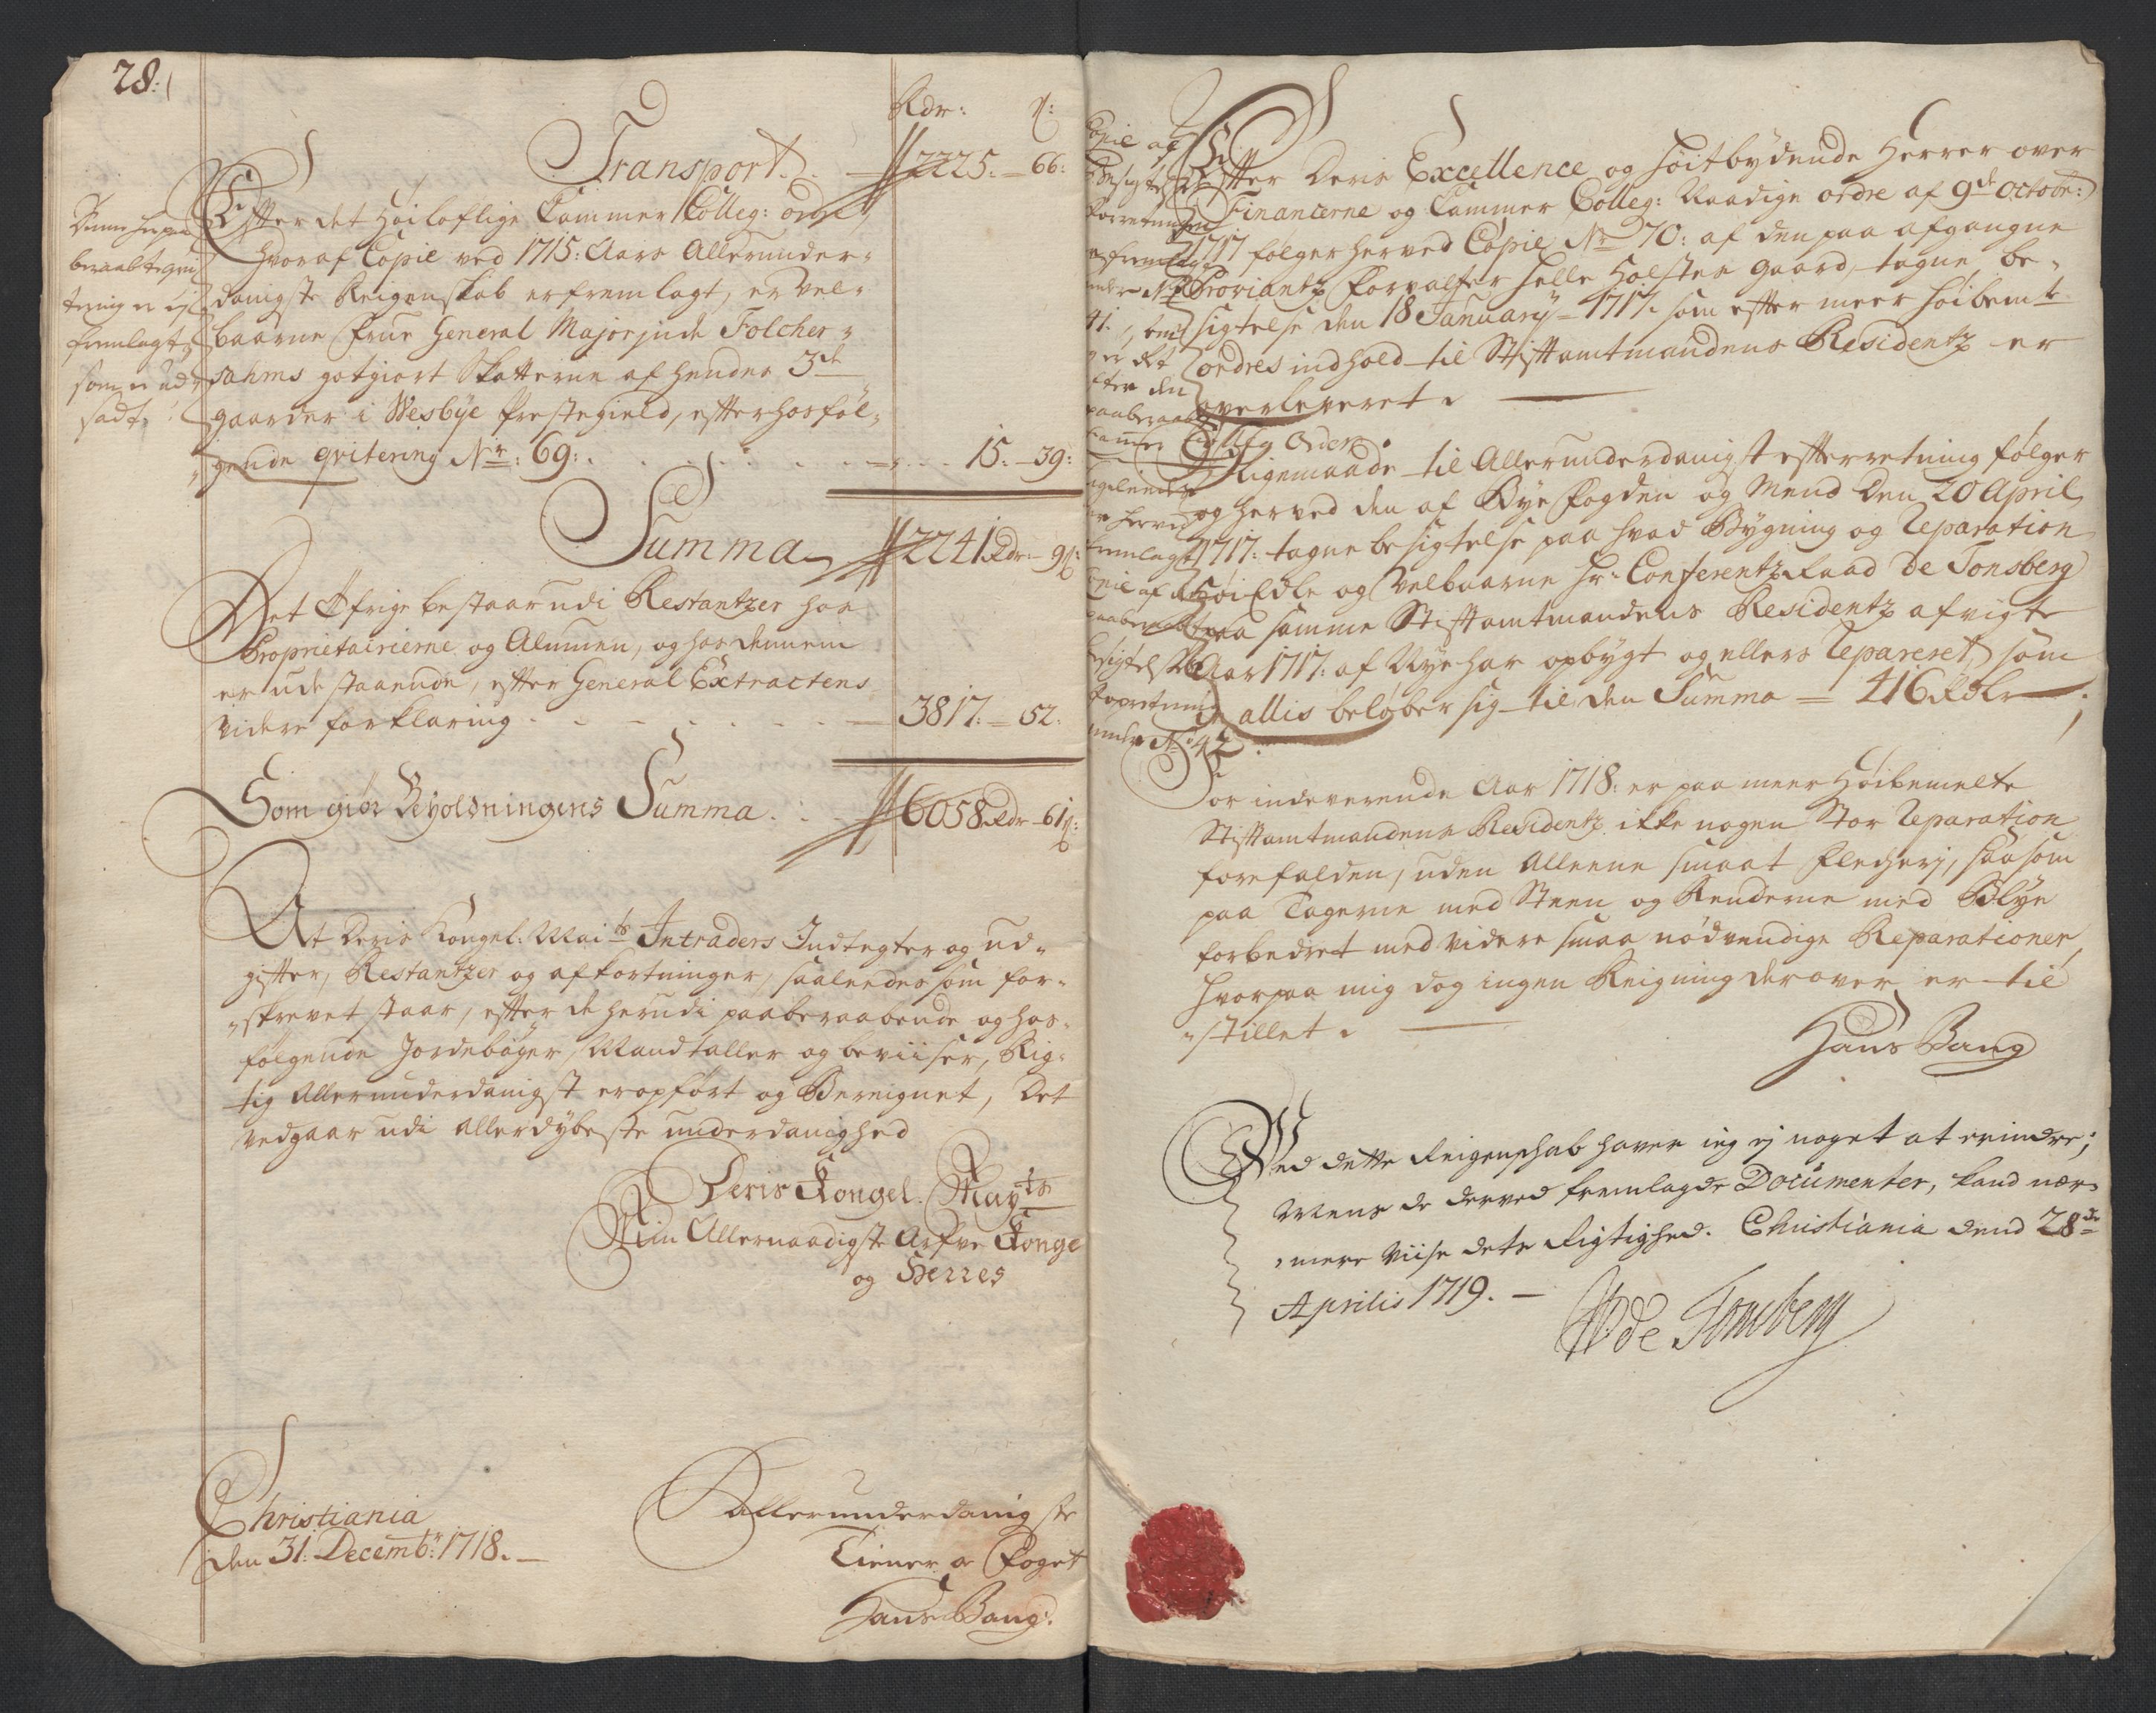 28:
Rdr: ß:
Transport. 2225. 66:
Efter det Höiloflige Cammer Colleg: ordre,
hvoraf Copie ved 1715: Aars Allerunder-
danigste Reigenskab er fremlagt, er Vel-
baarne Frue General Majorinde Folcker-
sahms gotgiort Skatterne af hendes 3de
gaarder i Wesbÿe Prestegield, efter hosföl-
gende qvitering No: 69: 15. 39:
Denne her paa
beraabte qvi
tering er ej
fremlagt,
som er ud-
sadt.
Summa 2241 Rdr 9 ß:
Det Öfrige bestaar udi Restantzer hos
Proprietairerne og Almuen, og hos dennem
er udestaaende, efter General Extractens
videre forklaring 3817. 52.
Som giör Beholdningens Summa. 6058 Rdr 61 ß:
At Deris Kongel: Maits Intraders Indtegter og ud-
gifter, Restantzer og afkortninger, saaledes som for-
skrevet staar, efter de herudi paaberaabende og hos-
fölgende Jordeböger, Mandtaller og beviiser, Rig-
tig Allerunderdanigst er opfört og Bereignet, Det
vedgaar udi allerdÿbeste underdanighed
Deris Kongel. Mayts
Min Allernaadigste Arfve Konge
og Herres
Christiania
den 31. Decembr: 1718.
allerunderdanigste
Tiener og Foget
Hans Bang.
Efter Deris Excellence og Höitbÿdende Herrer over
Financerne og Cammer Colleg: Naadige ordre af 9de Octobr:
1717 fölger herved Copie No 70: af den paa afgangne
Proviantz Forvalter Helle Holsten gaard, tagne be-
sigtelse den 18 Januarÿ 1717. som efter meer höibemte
ordres indhold til Stiftamtmandens Residentz er
overleveret.
Copie af
besigtelses
forretningen
er fremlagt
under No
41.
er det
efter den
paaberaabte
Cammer Collg Ordre.
Ligemaade til Allerunderdanigst efterretning fölger
og herved den af Bÿe Fogden og Mend Den 20 April
1717: tagne besigtelse paa hvad Bÿgning og Reparation
Höi Edle og Velbaarne Hr: Conferentz Raad De Tonsberg
paa samme Stiftamtmandens Residentz afvigte
Aar 1717: af Nÿe har opbÿgt og ellers Repareret, som
in allis belöber sig til den Summa 416 Rdlr;
ligeleedes
er herved
fremlagt
Copie af den
paaberaabte
besigtelses
forretning
under No 42.
For indeverende Aar 1718: er paa meer Höibemelte
Stiftamtmandens Residentz ikke nogen Stor Reparation
forefalden, uden Alleene smaat flecheri, saasom
paa Tagerne med Steen og Renderne med Blÿe
forbedret med videre smaa nödvendige Reparationer,
hvorpaa mig dog ingen Reigning derover er til
stillet.
Hans Bang
Ved dette Reigenschab haver ieg ej noget at erindre;
Mens de derved fremlagde Documenter, kand nær-
mere viise dets Rigtighed. Christiania dend 28de
Aprilis 1719.
W de Tonsberg